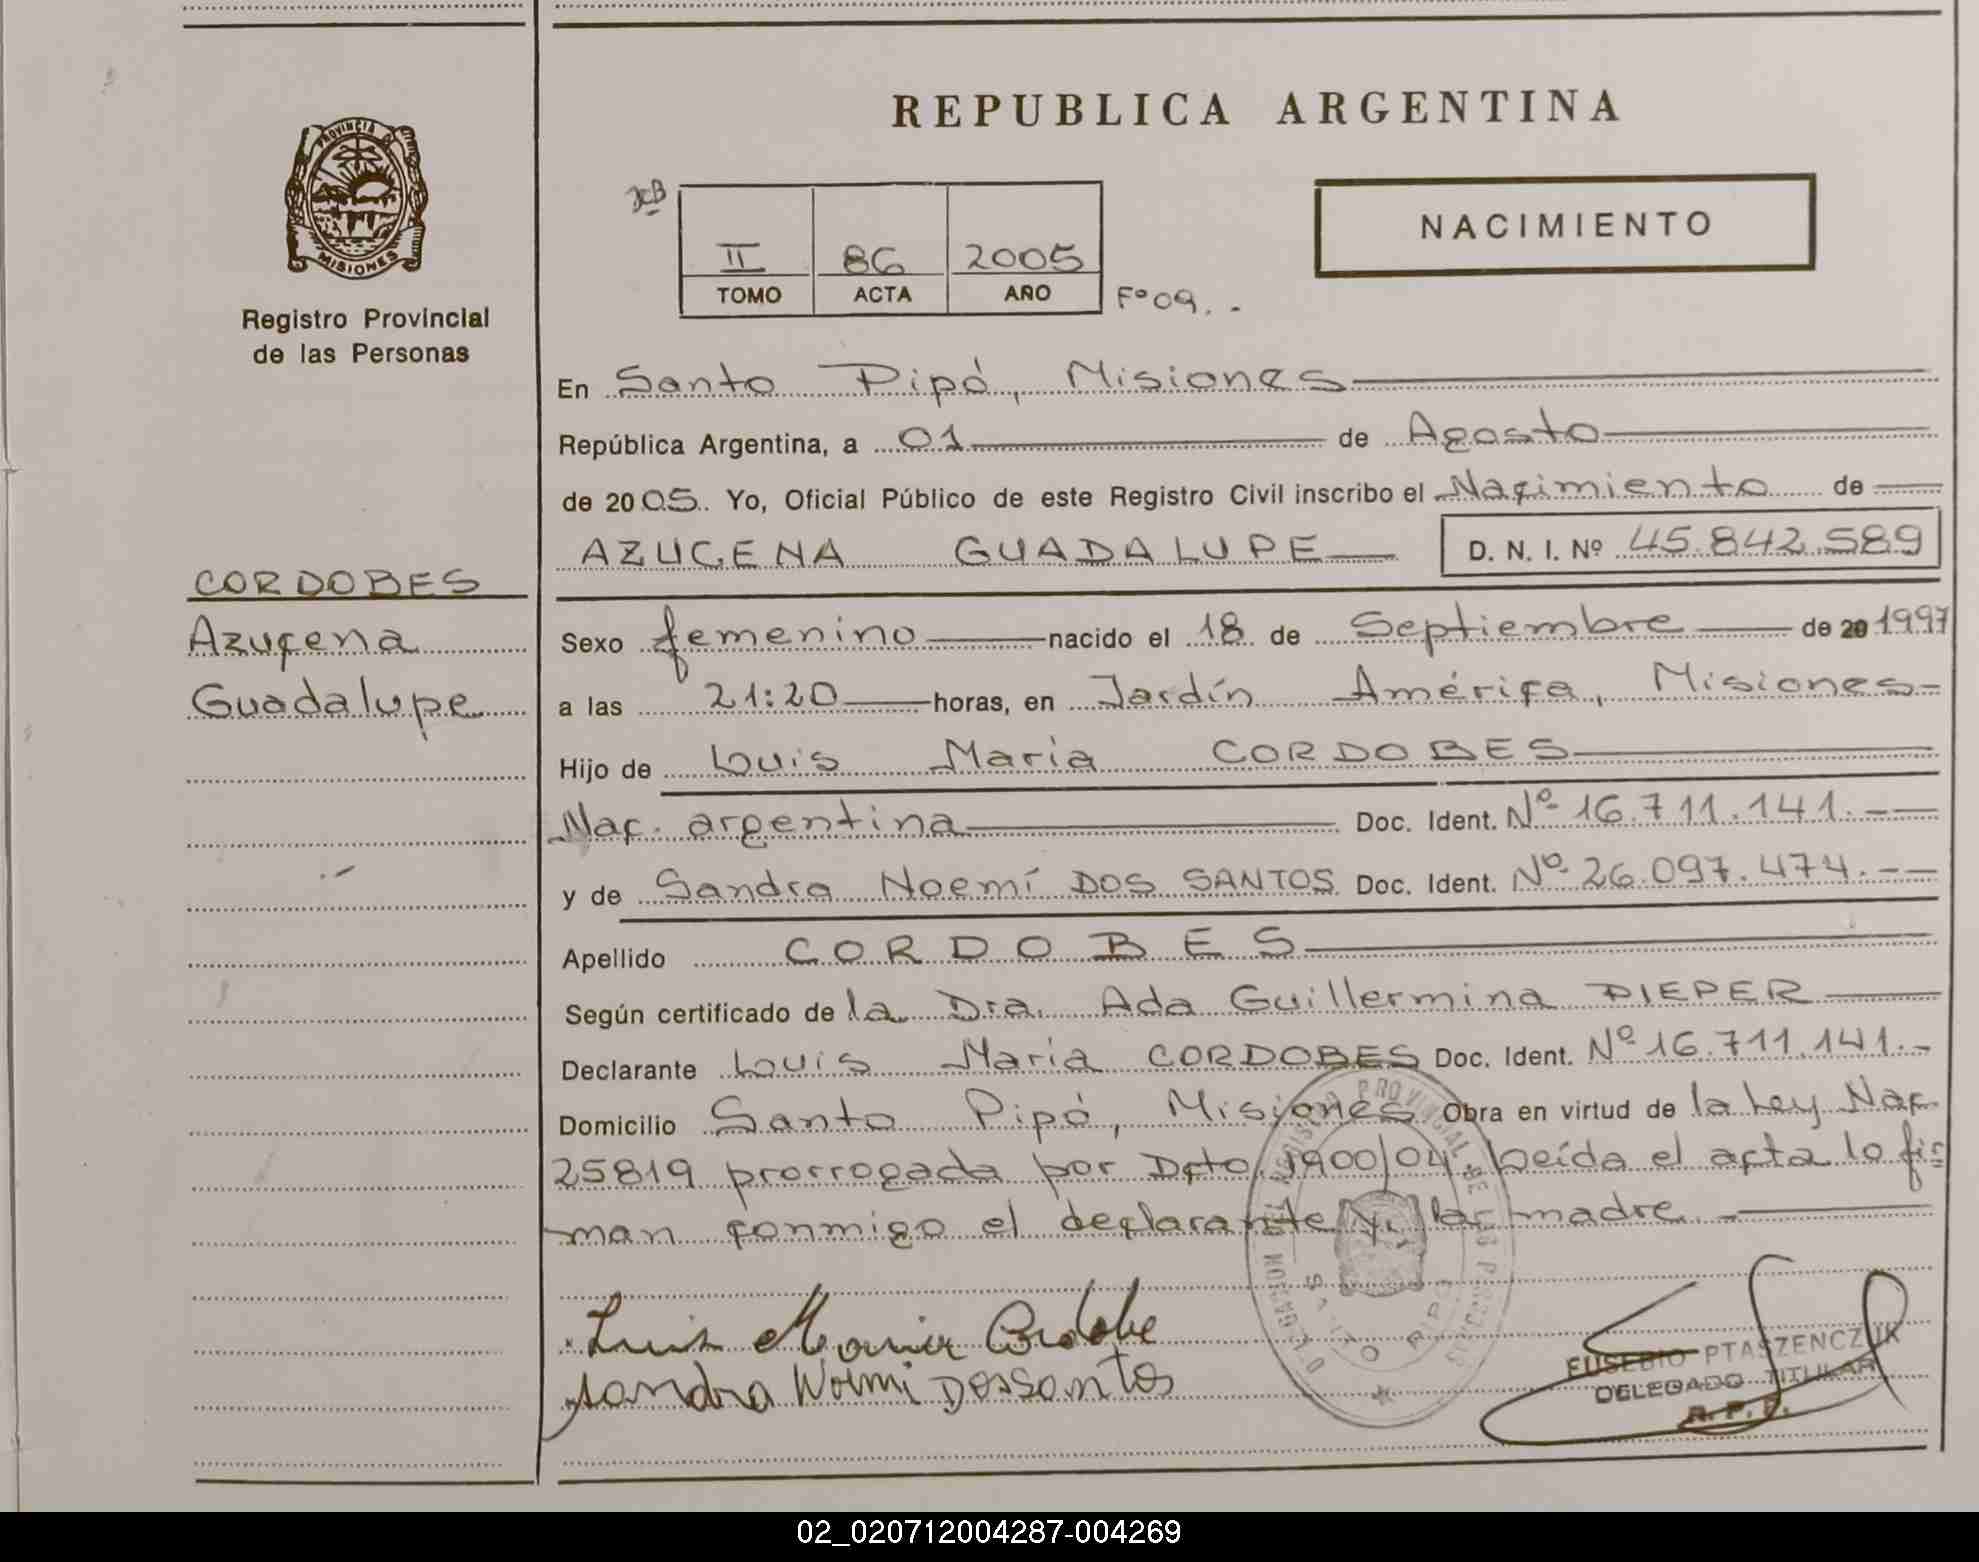 REPUBLICA ARGENTINA
PROVINCIA DE
MISIONES
Registro Provincial
de las Personas
II 86 2005
TOMO ACTA AÑO Fº 09. -
NACIMIENTO
En Santo Pipó, Misiones
República Argentina, a 01 de Agosto
de 2005. Yo, Oficial Público de este Registro Civil inscribo el Nacimiento de
AZUCENA GUADALUPE D. N. I. Nº 45.842.589
CORDOBES
Azucena
Guadalupe
Sexo femenino nacido el 18 de Septiembre de 20 1997
a las 21:20 horas, en Jardín América, Misiones-
Hijo de Luis Maria CORDOBES
Nac. argentina Doc. Ident. Nº 16.711.141. -
y de Sandra Noemí DOS SANTOS Doc. Ident. Nº 26.097.474. --
Apellido CORDOBES
Según certificado de la Dra. Ada Guillermina DIEPER
Declarante Luis Maria CORDOBES Doc. Ident. Nº 16.711.141.-
Domicilio Santo Pipó, Misiones Obra en virtud de la Ley Nac.
25819 prorrogada por Dcto. 1900/04. Leída el acta lo fir=
man conmigo el declarante y la madre. -
Luis Maria Cordobe
Sandra Noemi Dossantos
REGISTRO PROVINCIAL DE LAS PERSONAS
SANTO PIPO
EUSEBIO PTASZENCZUK
DELEGADO TITULAR
R. P. P.
02_020712004287-004269